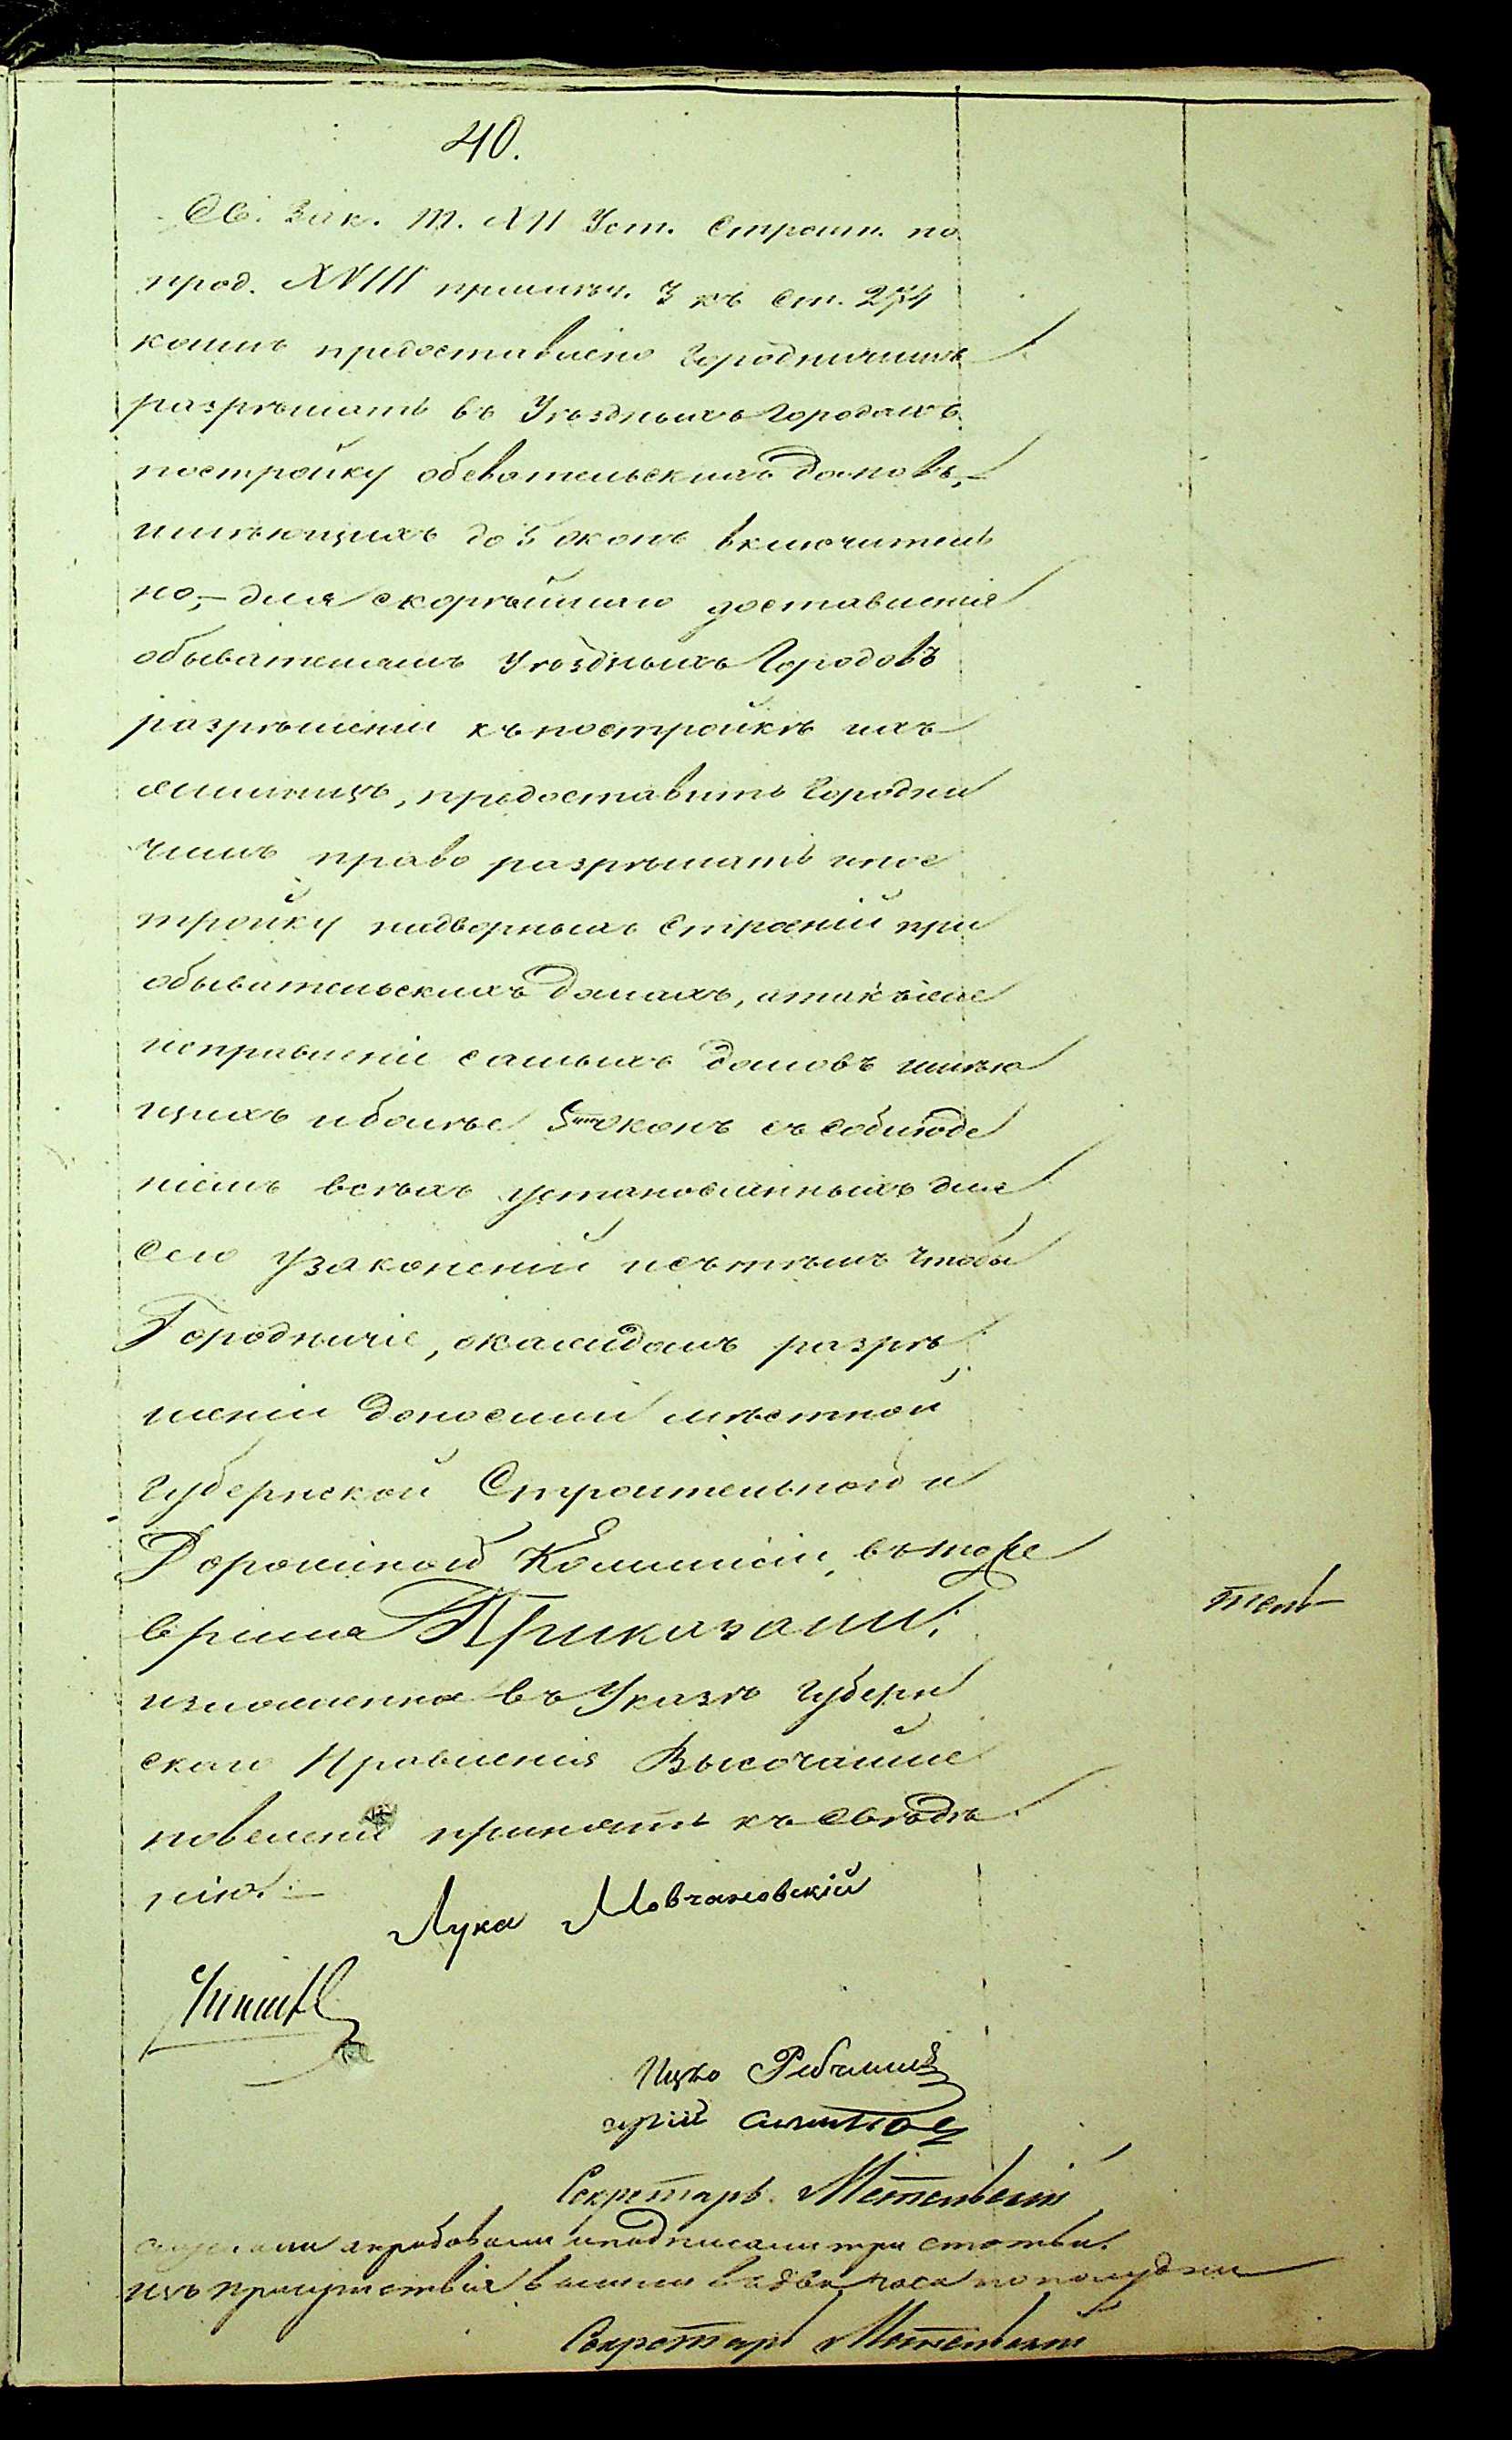 40.
Св. Зак. Т. XII Уст. Строит. по
прод. XVIII примѣч. 3 къ ст. 274
коимъ предоставлено Городничимъ
разрѣшать въ Уѣздныхъ Городахъ
постройку обевательскихъ домовъ,
имѣющихъ до 5 оконъ включитель
но,– для скорѣйшаго доставленія
обывателямъ Уѣздныхъ Городовъ
разрѣшеній къ постройкѣ ихъ
жилищъ, предоставить Городни
чимъ право разрѣшать и пос
тройку надворныхъ Строеній при
обывательскихъ домахъ, а такъже
исправленіи самыхъ домовъ имѣю
щихъ и болѣе 5ти оконъ съ соблюде
ніемъ всѣхъ установленныхъ для
сего узаконеній и съ тѣмъ чтобы
Городничіе, о каждомъ разрѣ
шеніи доносили мѣстной
Губернской Строительной и
Дорожной Коммисіи, въ тоже
время Приказали:
изложенное въ Указѣ Губерн
скаго Правленія Высочайше
повеленіе принять къ свѣдѣ
нію.–
Лука Мовчановскій
Ицко
Секретарь
слушали и подписали три статьи.
изъ присутствія вышли в два часа по полудни
Секретарь